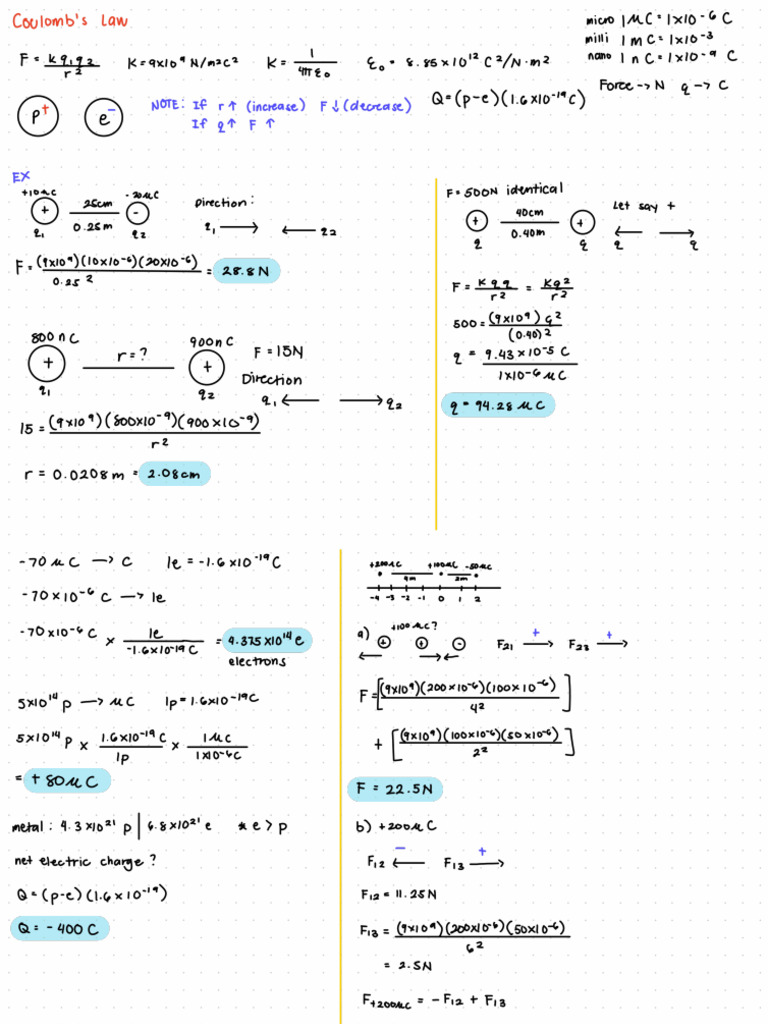 Coulomb's Law
micro 1 μC = 1×10⁻⁶ C
milli 1 mC = 1×10⁻³
nano 1 nC = 1×10⁻⁹ C
F = K q₁q₂ / r²   K = 9×10⁹ N/m²C²   K = 1 / 4πε₀   ε₀ = 8.85×10¹² C²/N·m²
Force → N   q → C
P⁺   e⁻
NOTE: If r↑ (increase) F↓ (decrease)
If q↑ F↑
Q = (p-e)(1.6×10⁻¹⁹C)
EX
+10μC   25cm   -20μC
+   0.25m   -
q₁   q₂
Direction:
q₁ →   ← q₂
F = (9×10⁹)(10×10⁻⁶)(20×10⁻⁶) / 0.25² = 28.8 N
800nC   r = ?   900nC
+   +
q₁   q₂
F = 15N
Direction
q₁ ←   → q₂
15 = (9×10⁹)(800×10⁻⁹)(900×10⁻⁹) / r²
r = 0.0208m = 2.08cm
F = 500N identical
+   40cm   +
0.40m
q   q
Let say +
← q   → q
F = K q q / r² = Kq² / r²
500 = (9×10⁹) q² / (0.40)²
q = 9.43×10⁻⁵ C / 1×10⁻⁶ μC
q = 94.28 μC
-70 μC → C   1e = -1.6×10⁻¹⁹C
-70×10⁻⁶ C → 1e
-70×10⁻⁶C × 1e / -1.6×10⁻¹⁹C = 4.375×10¹⁴ e
electrons
5×10¹⁴ p → μC   1p = 1.6×10⁻¹⁹C
5×10¹⁴ p × 1.6×10⁻¹⁹ C / 1p × 1μC / 1×10⁻⁶C
= +80μC
metal: 4.3×10²¹ p | 6.8×10²¹ e   * e > p
net electric charge?
Q = (p-e)(1.6×10⁻¹⁹)
Q = -400 C
+200μC   +100μC   -50μC
4m   2m
-4 -3 -2 -1 0 1 2
a) +100μC?
+   +   -
←   → ←
F₂₁ → +   F₂₃ → +
F = [(9×10⁹)(200×10⁻⁶)(100×10⁻⁶) / 4²]
+ [(9×10⁹)(100×10⁻⁶)(50×10⁻⁶) / 2²]
F = 22.5N
b) +200μC
F₁₂ ← -   F₁₃ → +
F₁₂ = 11.25N
F₁₃ = (9×10⁹)(200×10⁻⁶)(50×10⁻⁶) / 6²
= 2.5N
F₊₂₀₀μC = -F₁₂ + F₁₃